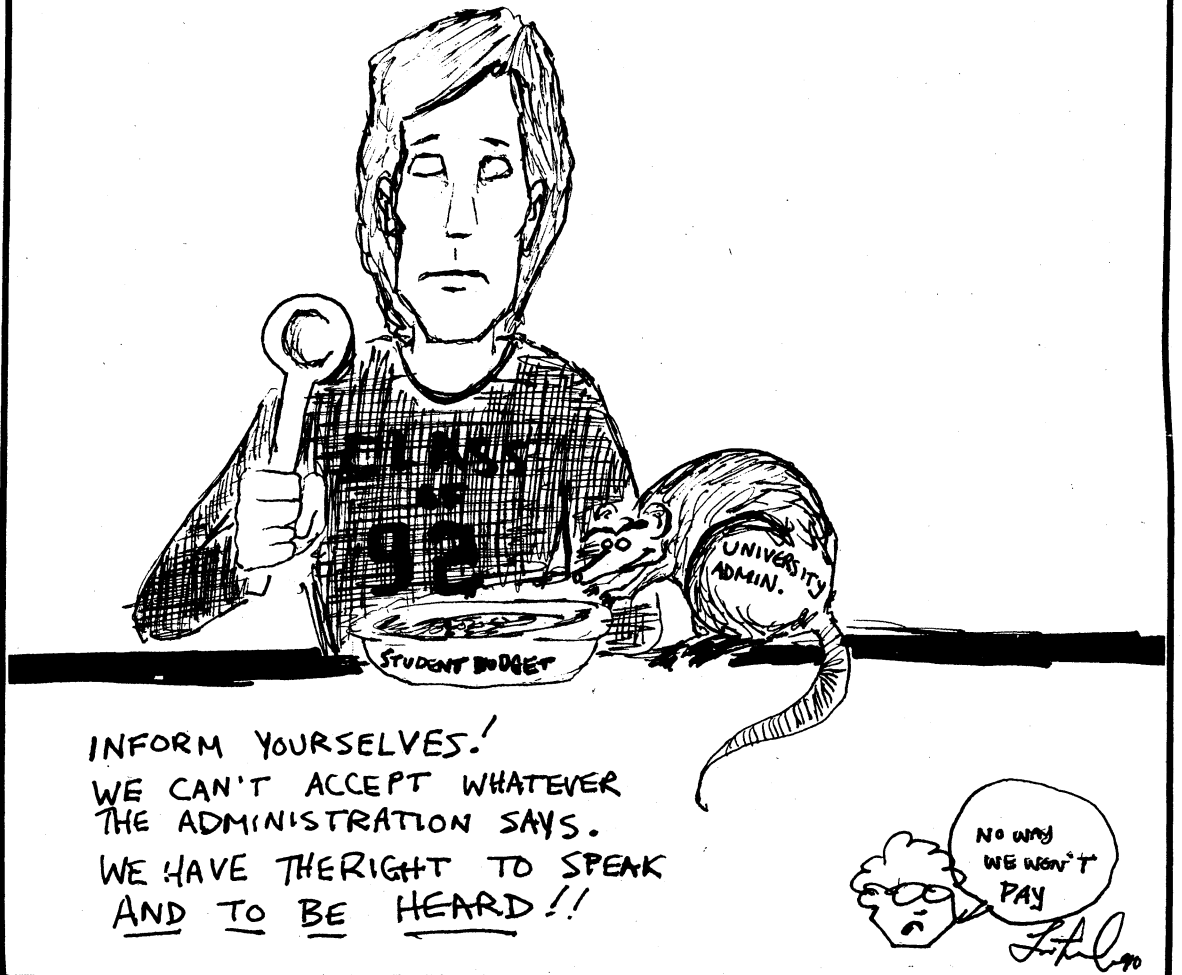 CLASS
OF
92
UNIVERSITY
ADMIN.
STUDENT BUDGET
INFORM YOURSELVES!
WE CAN'T ACCEPT WHATEVER
THE ADMINISTRATION SAYS.
WE HAVE THERIGHT TO SPEAK
AND TO BE HEARD!!
NO WAY
WE WON'T
PAY